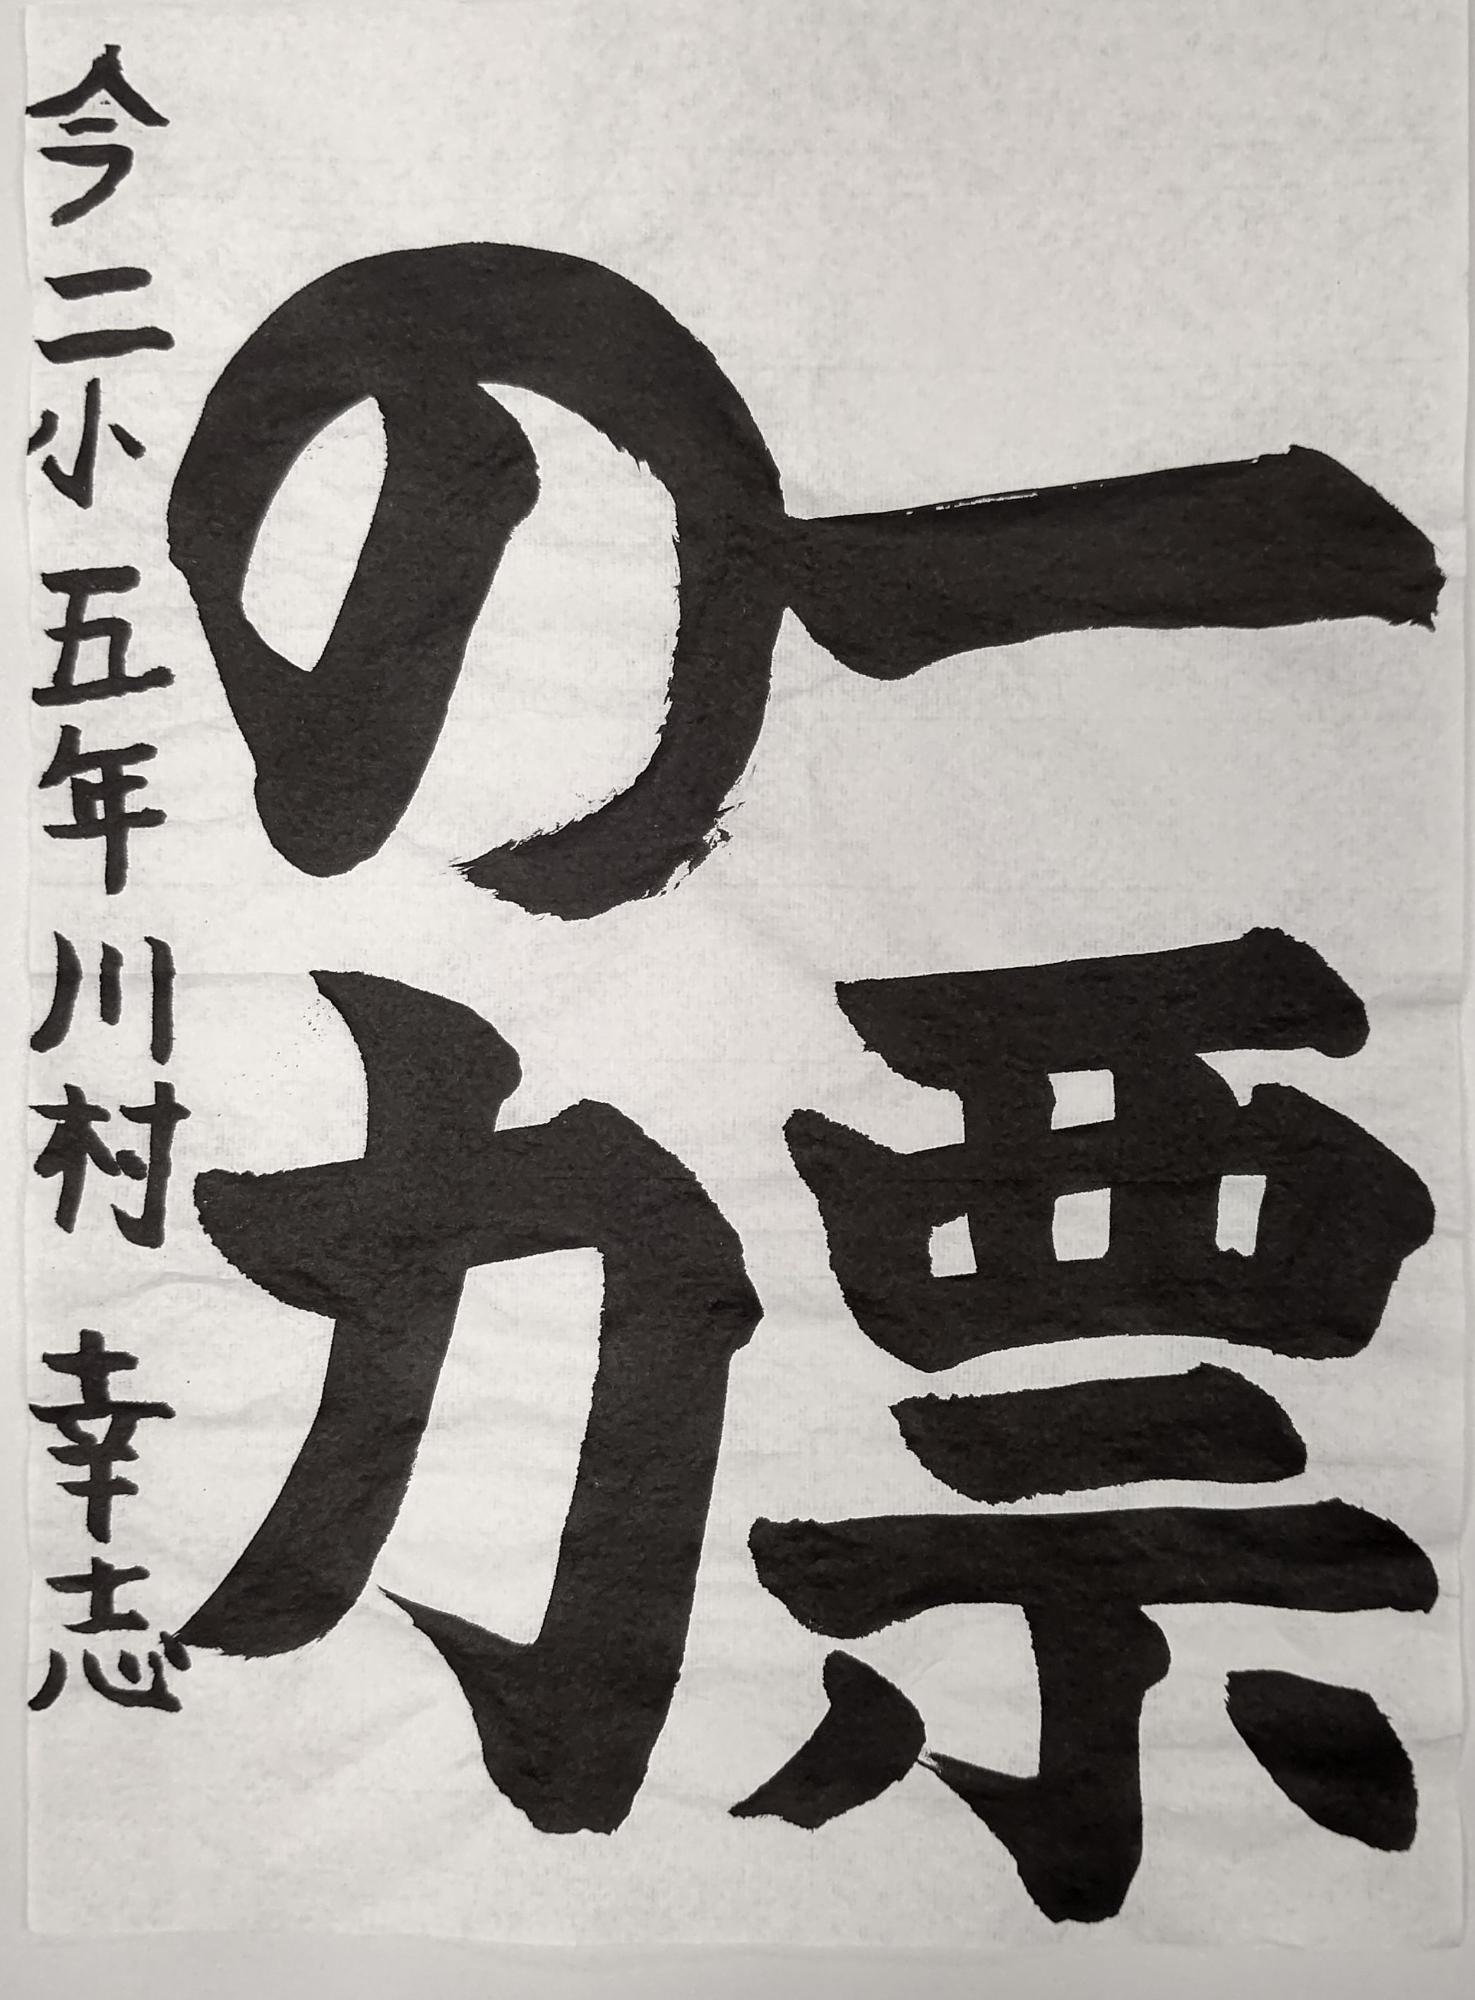 一票
の力
今二小 五年 川村 幸志